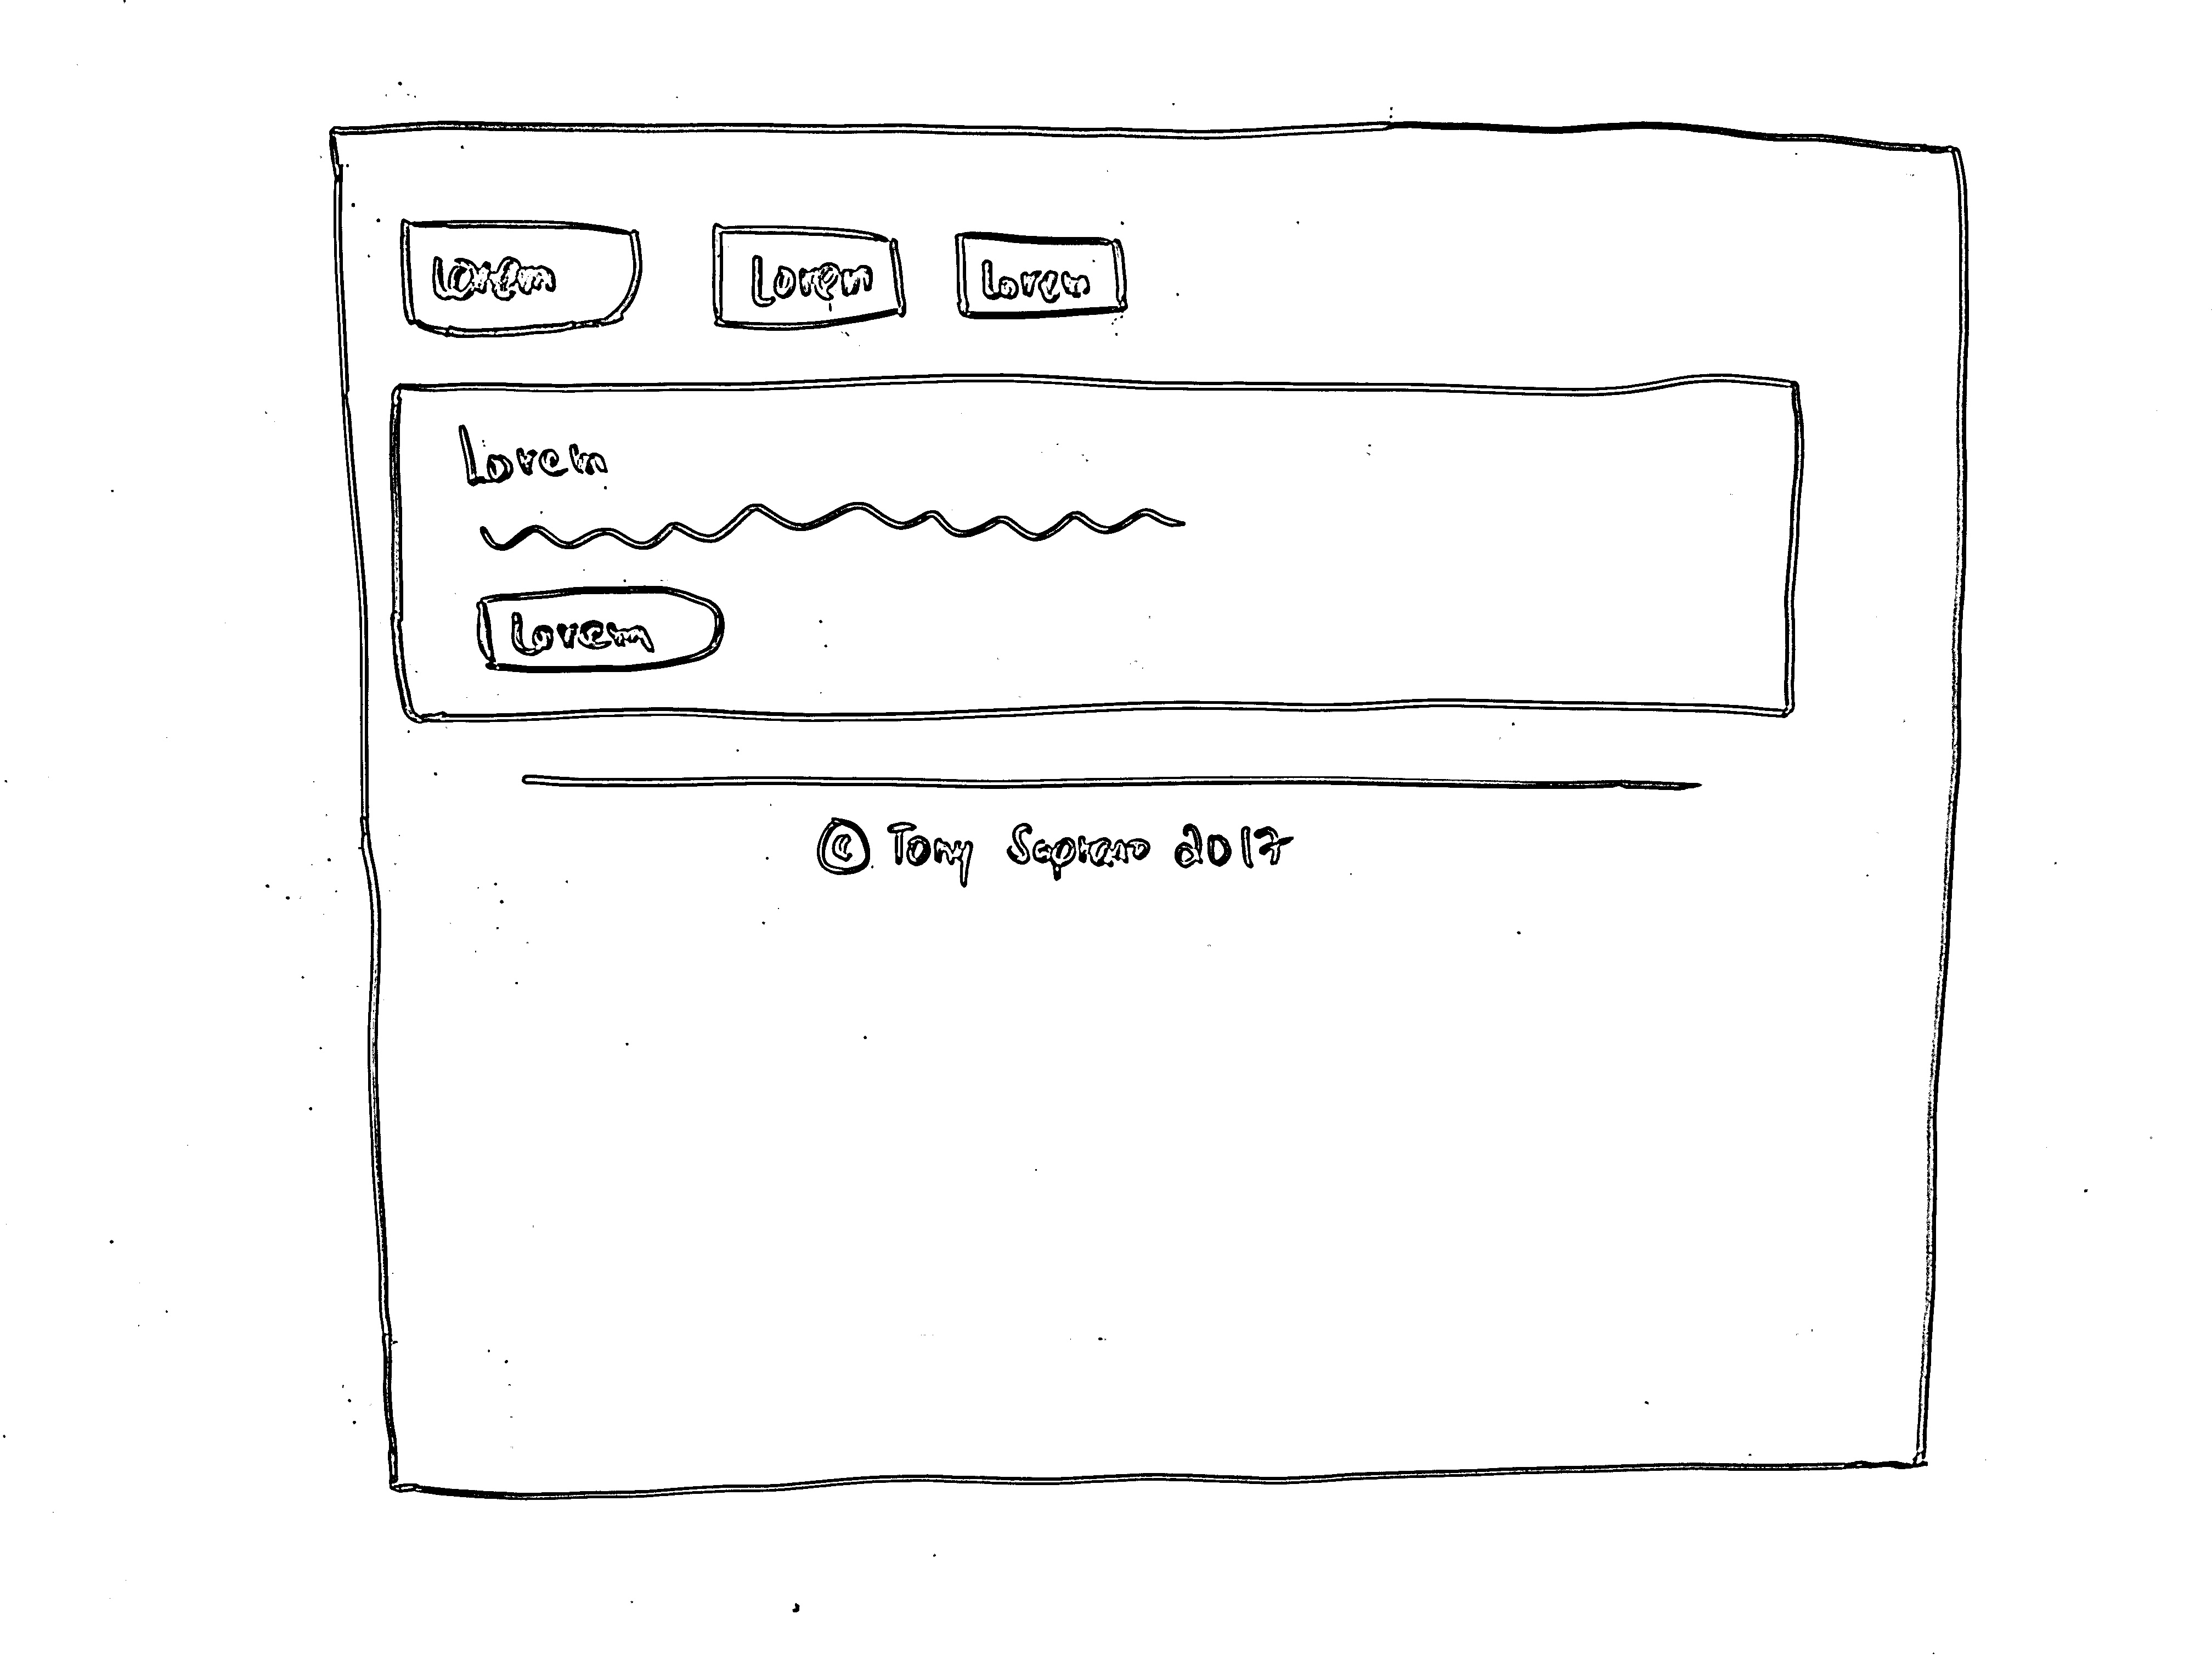 Lorem Lorem Lorem
Lorem
Lorem
© Tony Soprano 2017